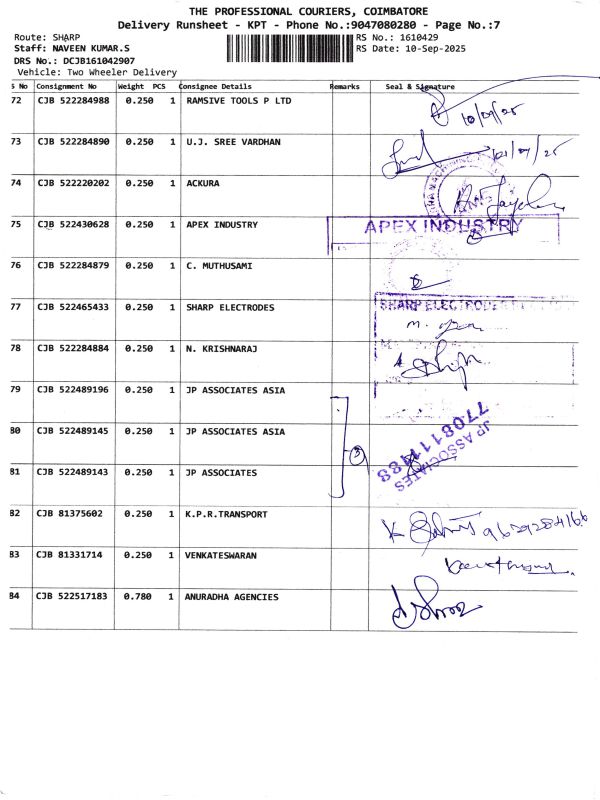 THE PROFESSIONAL COURIERS, COIMBATORE
Delivery Runsheet - KPT - Phone No.:9047080280 - Page No.:7
Route: SHARP
RS No.: 1610429
Staff: NAVEEN KUMAR.S
RS Date: 10-Sep-2025
DRS No.: DCJB161042907
Vehicle: Two Wheeler Delivery
S No Consignment No Weight PCS Consignee Details Remarks Seal & Signature
72 CJB 522284988 0.250 1 RAMSIVE TOOLS P LTD
10/09/25
73 CJB 522284890 0.250 1 U.J. SREE VARDHAN
74 CJB 522220202 0.250 1 ACKURA
75 CJB 522430628 0.250 1 APEX INDUSTRY APEX INDUSTRY
76 CJB 522284879 0.250 1 C. MUTHUSAMI
77 CJB 522465433 0.250 1 SHARP ELECTRODES SHARP ELECTRODES
78 CJB 522284884 0.250 1 N. KRISHNARAJ
79 CJB 522489196 0.250 1 JP ASSOCIATES ASIA
80 CJB 522489145 0.250 1 JP ASSOCIATES ASIA
3
JP ASSOCIATES
7708111488
81 CJB 522489143 0.250 1 JP ASSOCIATES
82 CJB 81375602 0.250 1 K.P.R.TRANSPORT
83 CJB 81331714 0.250 1 VENKATESWARAN
84 CJB 522517183 0.780 1 ANURADHA AGENCIES